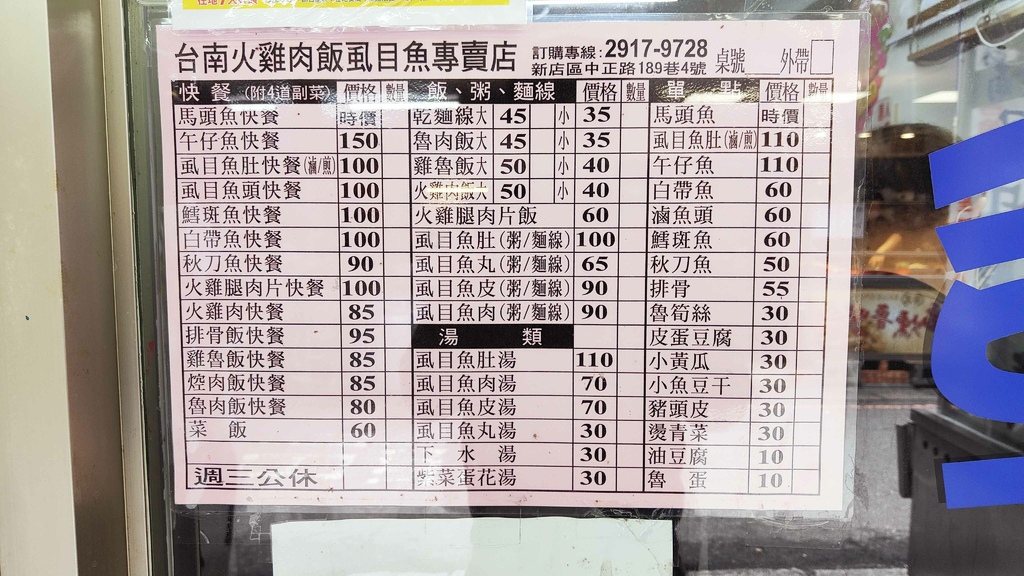 台南火雞肉飯虱目魚專賣店 訂購專線:2917-9728 桌號 外帶
新店區中正路189巷4號
快餐(附4道副菜) 價格 數量 飯、粥、麵線 價格 數量 單點 價格 數量
馬頭魚快餐 時價 乾麵線大 45 小 35 馬頭魚 時價
午仔魚快餐 150 魯肉飯大 45 小 35 虱目魚肚(滷/煎) 110
虱目魚肚快餐(滷/煎) 100 雞魯飯大 50 小 40 午仔魚 110
虱目魚頭快餐 100 火雞肉飯大 50 小 40 白帶魚 60
鱈斑魚快餐 100 火雞腿肉片飯 60 滷魚頭 60
白帶魚快餐 100 虱目魚肚(粥/麵線) 100 鱈斑魚 60
秋刀魚快餐 90 虱目魚丸(粥/麵線) 65 秋刀魚 50
火雞腿肉片快餐 100 虱目魚皮(粥/麵線) 90 排骨 55
火雞肉快餐 85 虱目魚肉(粥/麵線) 90 魯筍絲 30
排骨飯快餐 95 湯類 皮蛋豆腐 30
雞魯飯快餐 85 虱目魚肚湯 110 小黃瓜 30
焢肉飯快餐 85 虱目魚肉湯 70 小魚豆干 30
魯肉飯快餐 80 虱目魚皮湯 70 豬頭皮 30
菜飯 60 虱目魚丸湯 30 燙青菜 30
下水湯 30 油豆腐 10
週三公休 紫菜蛋花湯 30 魯蛋 10